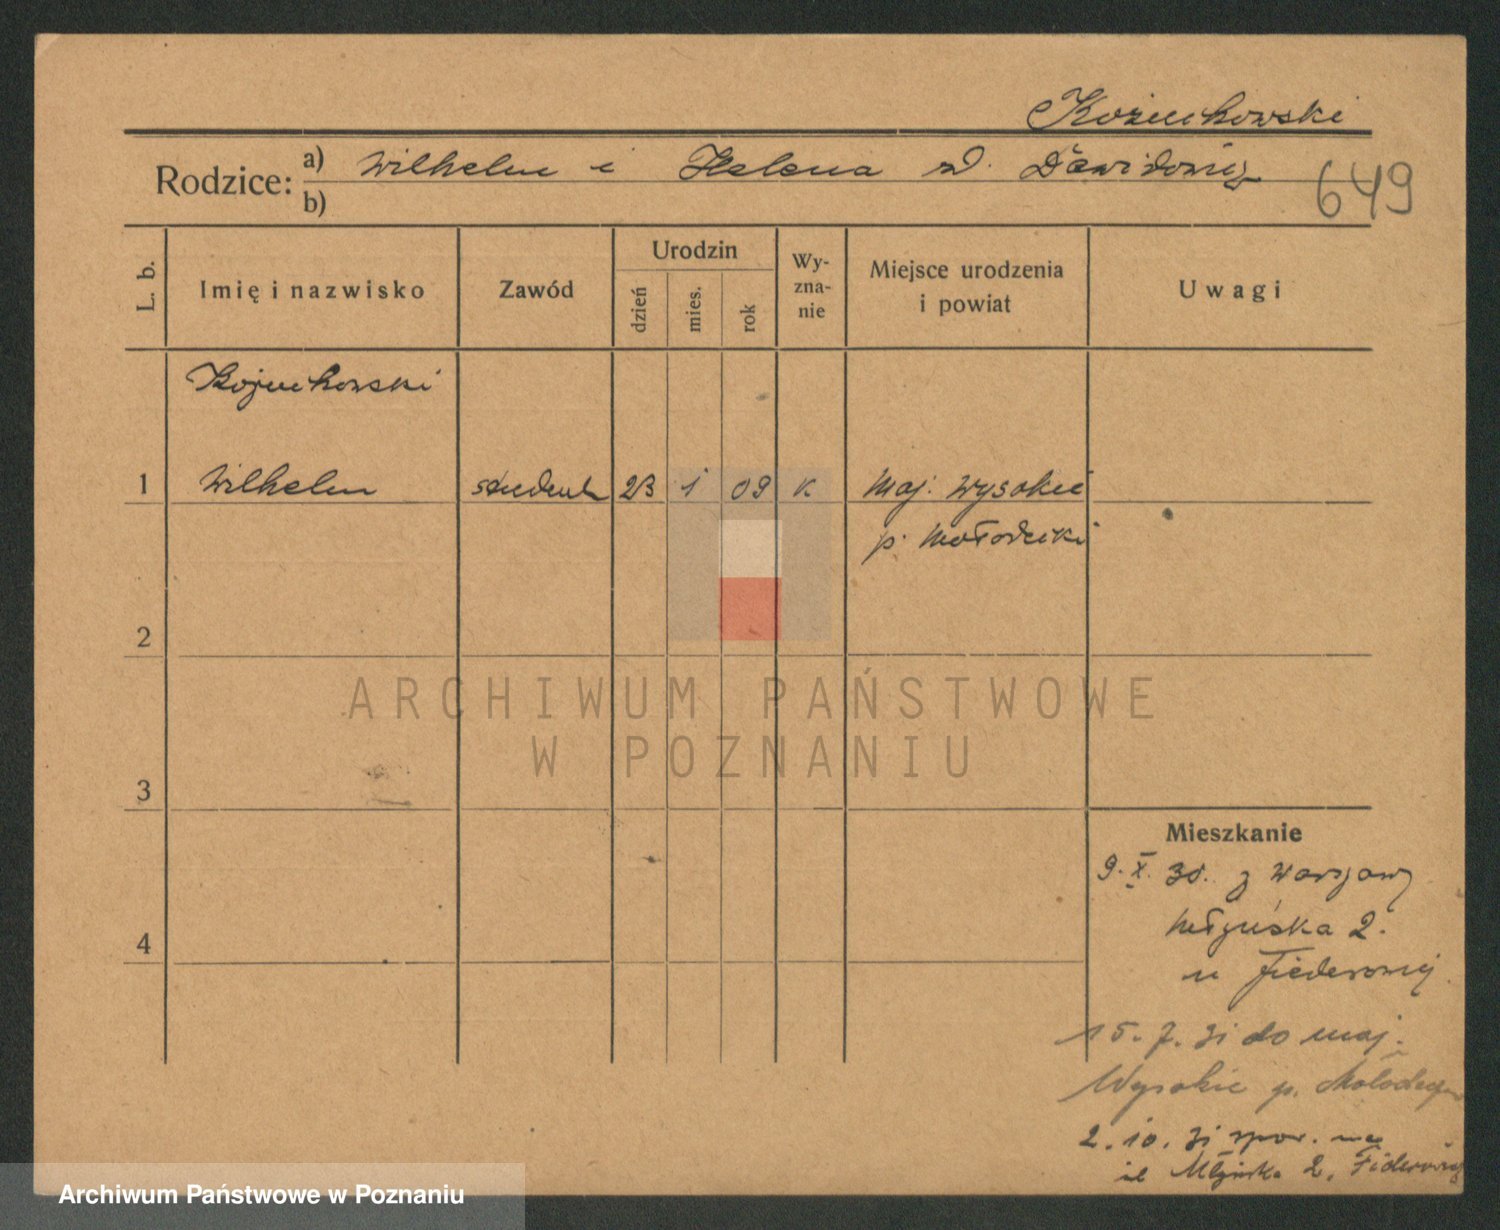 Kożuchowski
Rodzice: a) Wilhelm i Helena z d. Dawidowicz
b)
649
L. b.
Imię i nazwisko
Zawód
Urodzin
dzień
mies.
rok
Wy-
zna-
nie
Miejsce urodzenia
i powiat
Uwagi
Kożuchowski
1 Wilhelm student 23 1 09 K maj. Wysokie
p.
2
3
4
ARCHIWUM PAŃSTWOWE
W POZNANIU
Mieszkanie
9. X. 30. z Warszawy
Młyńska 2.
u
15. 7. 31 do maj.
Wysokie p.
2. 10. 31 spow. na
ul Młyńska 2.
Archiwum Państwowe w Poznaniu